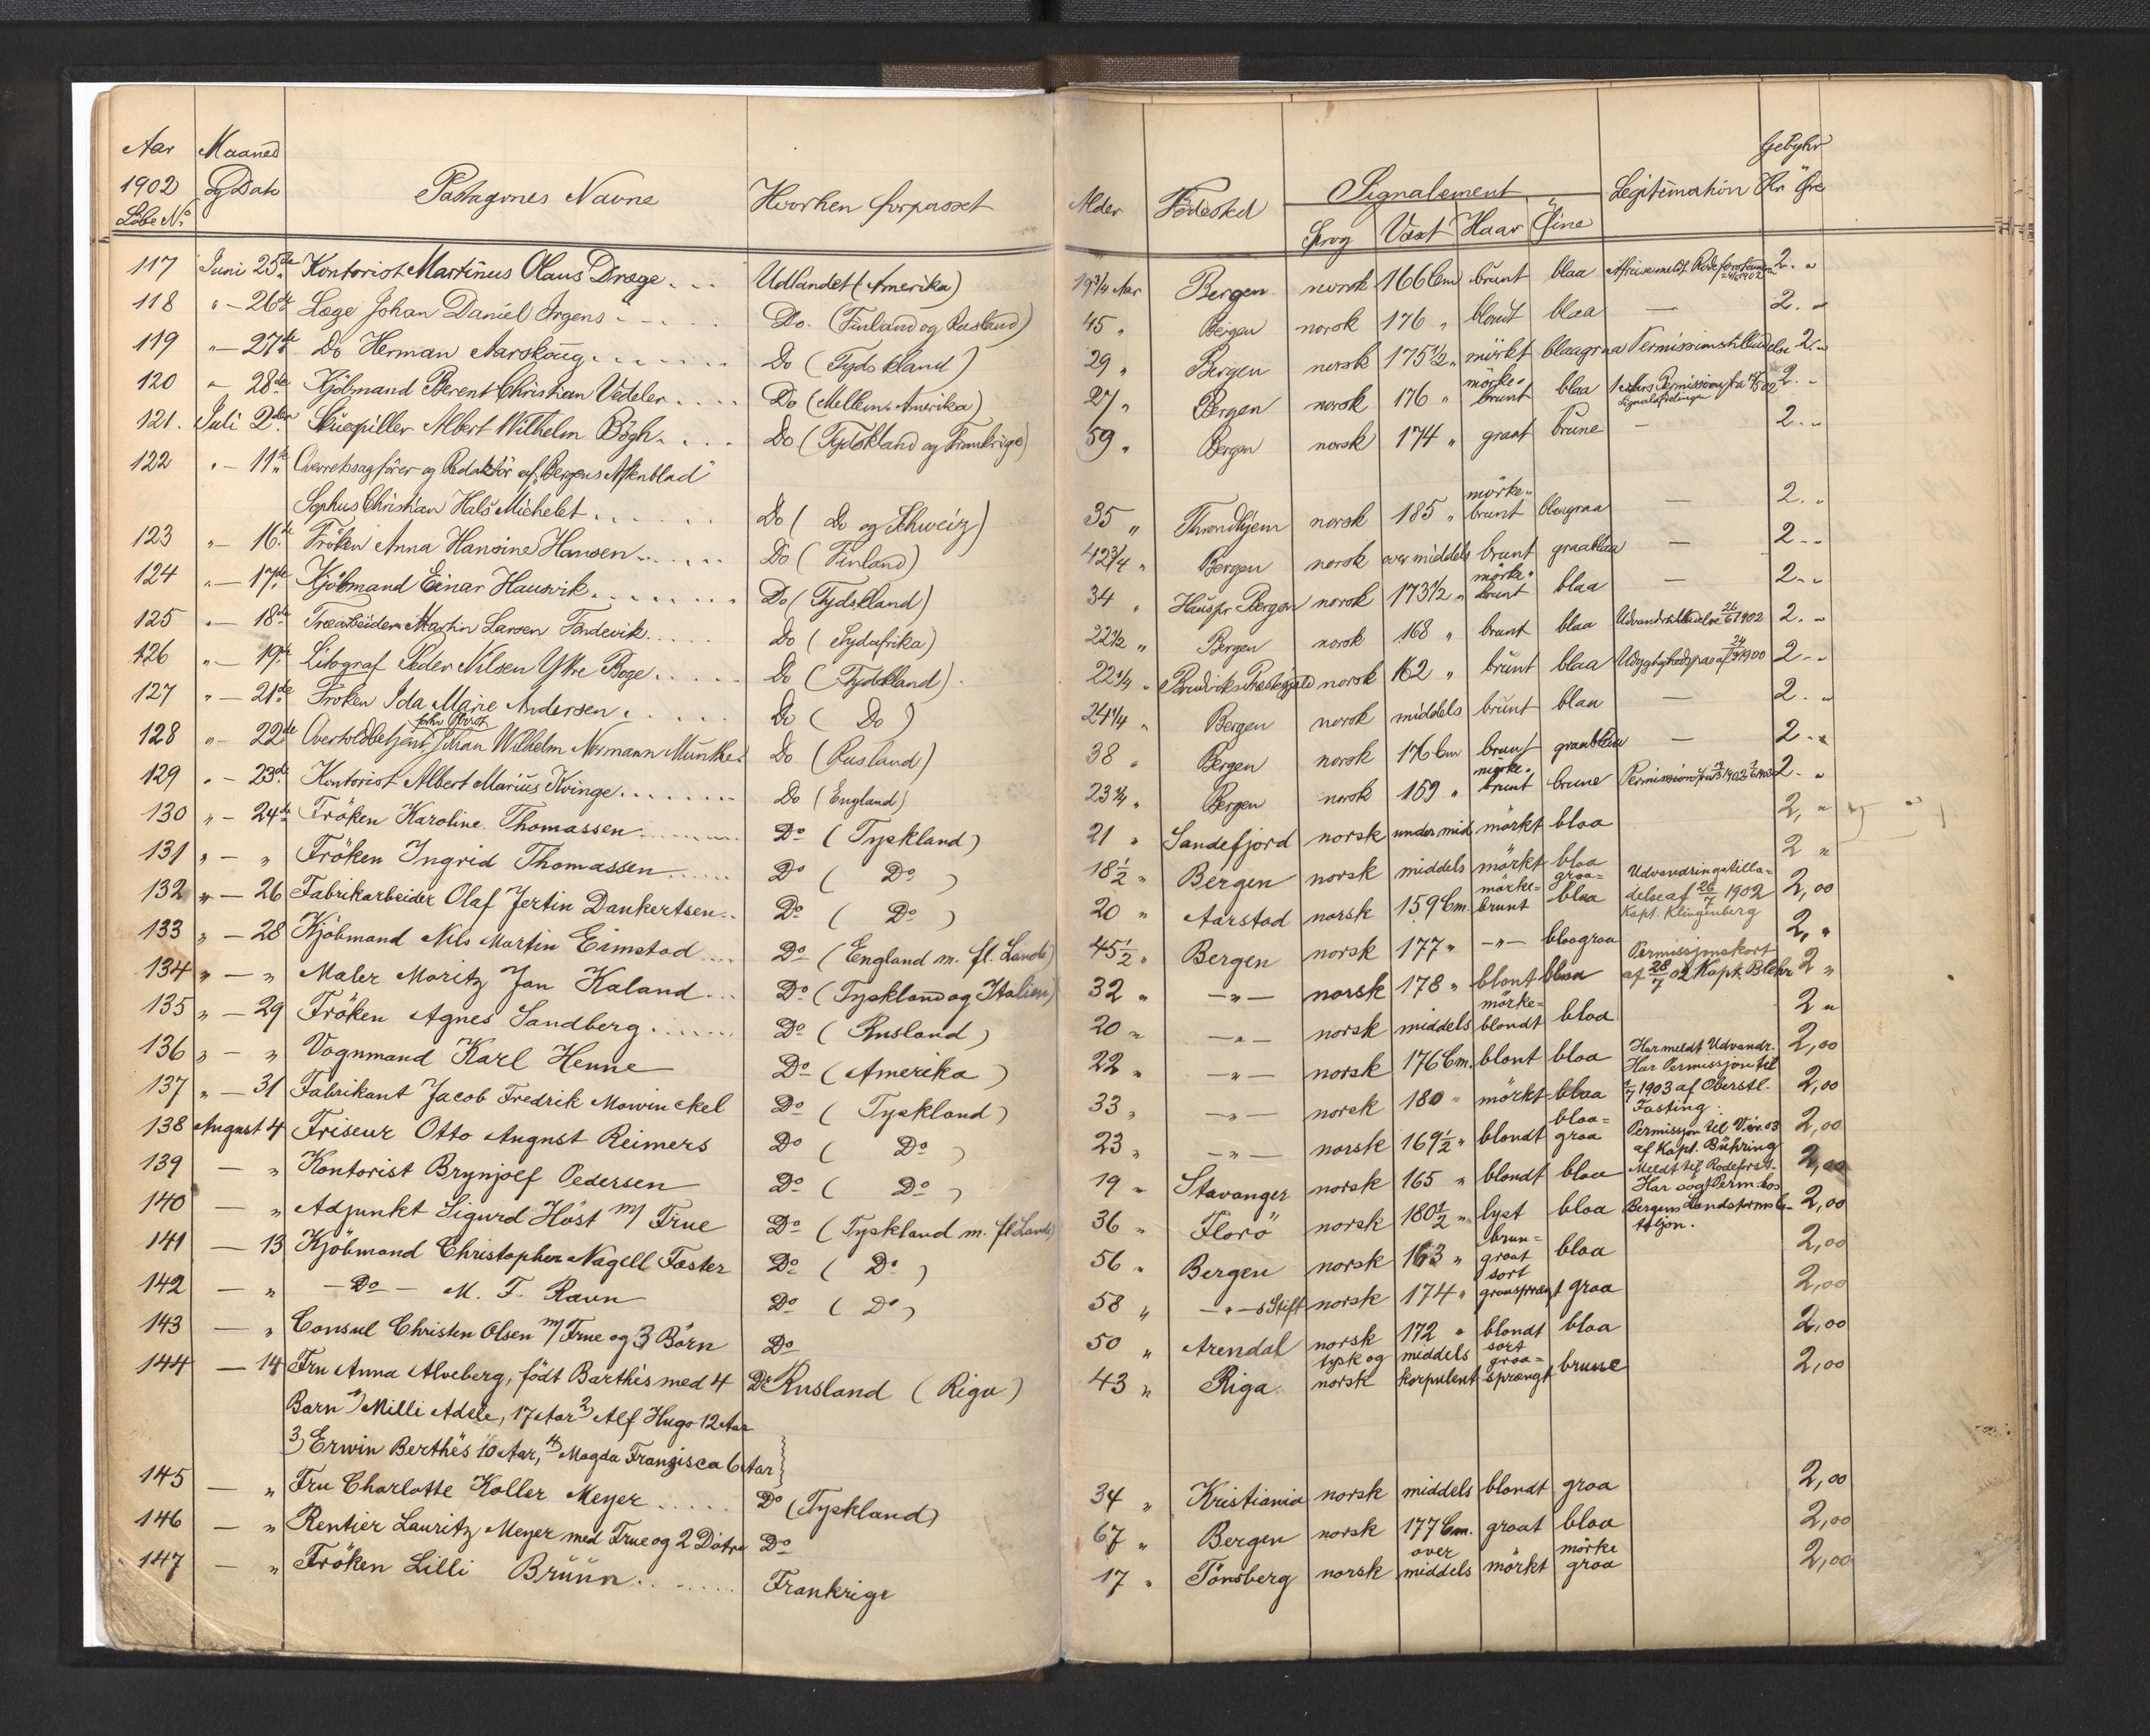 Aar Maaned
1902 og Dato Passagernes Navne Hvorhen forpasset Alder Fødested Signalement Legitimation Gebyhr Kr Øre
Løbe No. Sprog Vext Haar Öine
117 Juni 25de Kontorist Martinus Olaus Dræge . . . Udlandet (Amerika) 19¾ Aar Bergen norsk 166 Cm brunt blaa 2. "
118 " - 26de Læge Johan Daniel Irgens - - . . Do. (Finland og Rusland) 45 " Bergen norsk 176 " blont blaa — 2. "
119 " - 27de Do Herman Aarskoug . . . . . . Do (Tydskland) 29 " Bergen norsk 175½ " mörkt blaagraa Permissionstilladelse 2. "
120 " - 28de Kjöbmand Berent Christian Vedeler . . . . Do (Mellem-Amerika) 27 " Bergen norsk 176 " mörke- brunt blaa 1 Aars Permission fra 2. "
121. Juli 2den Skuespiller Albert Wilhelm Bögh . . . . Do (Tydskland og Frankrige) 59 " Bergen norsk 174 " graat brune - 2. "
122 " - 11te Overretssagförer og Redaktör af "Bergens Aftenblad"
Sophus Christian Hals Michelet . . . . . . Do ( Do og Schweiz) 35 " Throndhjem norsk 185 " mörke- brunt blaagraa — 2. "
123 " - 16de Fröken Anna Hansine Hansen . . . . . Do ( Finland) 42¾ " Bergen norsk over middels brunt graablaa — 2 - "
124 " - 17de Kjöbmand Einar Hausvik . . . . . . . Do (Tydskland) 34 " Haus pr Bergen norsk 173½ " mörke- brunt blaa — 2 - "
125 " - 18de Træarbeider Martin Larsen Tondevik . . . . Do (Sydafrika) 22½ " Bergen norsk 168 " brunt blaa Udvandr.tilladelse 26/6 1902 2. "
126 " - 19de Litograf Peder Nilsen Ytre Boge . . . . . Do (Tydskland) 22¼ " Bruviks Præstegjæld norsk 162 " brunt blaa Udygtighedspas af 24/9 1900 2 - "
127 " - 21de Fröken Ida Marie Andersen . . . . . Do ( Do ) 24¼ " Bergen norsk middels brunt blaa — 2. "
128 " - 22de Overtoldbetjent Johan Wilhelm Normann Munthe Do (Rusland) 38 " Bergen norsk 176 Cm brunt graablaa — 2 - "
129 " - 23de Kontorist Albert Marius Kvinge . . . . . . . . Do (England) 23¼ " Bergen norsk 159 " mörke- brunt brune Permission fra 2. "
130 " - 24de Fröken Karoline Thomassen . . . . . Do (Tyskland) 21 " Sandefjord norsk under mid. mörkt blaa 2, "
131 " - " Fröken Ingrid Thomassen . . . . . Do ( Do ) 18½ " Bergen norsk middels mörkt blaa 2 "
132 " - 26 Fabrikarbeider Olaf Jertin Dankertsen . . Do ( Do ) 20 " Aarstad norsk 159 Cm. mörke= brunt graa= blaa Udvandringstilla=
delse af 26/7 1902 2,00
Kapt. Klingenberg
133 " - 28 Kjöbmand Nils Martin Eimstad . . . . Do (England m. fl. Lande) 45½ " Bergen norsk 177 " -"- blaagraa 2, "
134 " - " Maler Moritz Jan Kaland . . . Do (Tyskland og Italien) 32 " -"- norsk 178 " blont blaa Permissjonskort
af 28/7 02 Kapt. Blehr 2 "
135 " - 29 Fröken Agnes Sandberg . . . . . Do (Rusland) 20 " -"- norsk middels mörke= blondt blaa 2 "
136 " - " Vognmand Karl Henne Do (Amerika) 22 " -"- norsk 176 Cm. blont blaa Har meldt Udvandr. 2,00
137 " - 31 Fabrikant Jacob Fredrik Mowinckel Do (Tyskland) 33 " -"- norsk 180 " mörkt blaa Har Permissjon til
1/7 1903 af Oberstl. 2,00
Fasting.
138 August 4 Friseur Otto August Reimers Do ( Do ) 23 " -"- norsk 169½ " blondt blaa= graa Permissjon til
af Kapt. Bühring 2,00
139 - " Kontorist Brynjolf Pedersen Do ( Do ) 19 " Stavanger norsk 165 " blondt blaa Meldt til Rodeforst. 2,00
140 - " Adjunkt Sigurd Höst m/ Frue Do (Tyskland m. fl Lande) 36 " Florö norsk 180½ " lyst blaa Har sögt Perm. hos
Bergens Landstormsba- 2,00
taljon.
141 - 13 Kjöbmand Christopher Nagell Faster Do ( Do ) 56 " Bergen norsk 163 " brun= graat blaa 2,00
142 - " - Do - M. F. Ravn Do ( Do ) 58 " -"- s Stift norsk 174 " sort graasprængt graa 2,00
143 - " Consul Christen Olsen m/ Frue og 3 Börn Do 50 " Arendal norsk 172 " blondt blaa 2,00
144 - 14 Fru Anna Alveberg, født Barthès med 4 Do Rusland (Riga) 43 " Riga tysk og norsk middels korpulent sort graa= sprængt brune 2,00
Barn 1) Milli Adele, 17 Aar 2) Alf Hugo 12 Aar
3) Erwin Berthès 10 Aar, 4) Magda Franzisca 6 Aar
145 - " Fru Charlotte Koller Meyer . . . . . Do (Tyskland) 34 " Kristiania norsk middels blondt graa 2,00
146 - " Rentier Lauritz Meyer med Frue og 2 Dötre Do 67 " Bergen norsk 177 Cm. graat blaa 2,00
147 - " Fröken Lilli Brüun . . . . . . Frankrige 17 " Tönsberg norsk over middels mörkt mörke graa 2,00